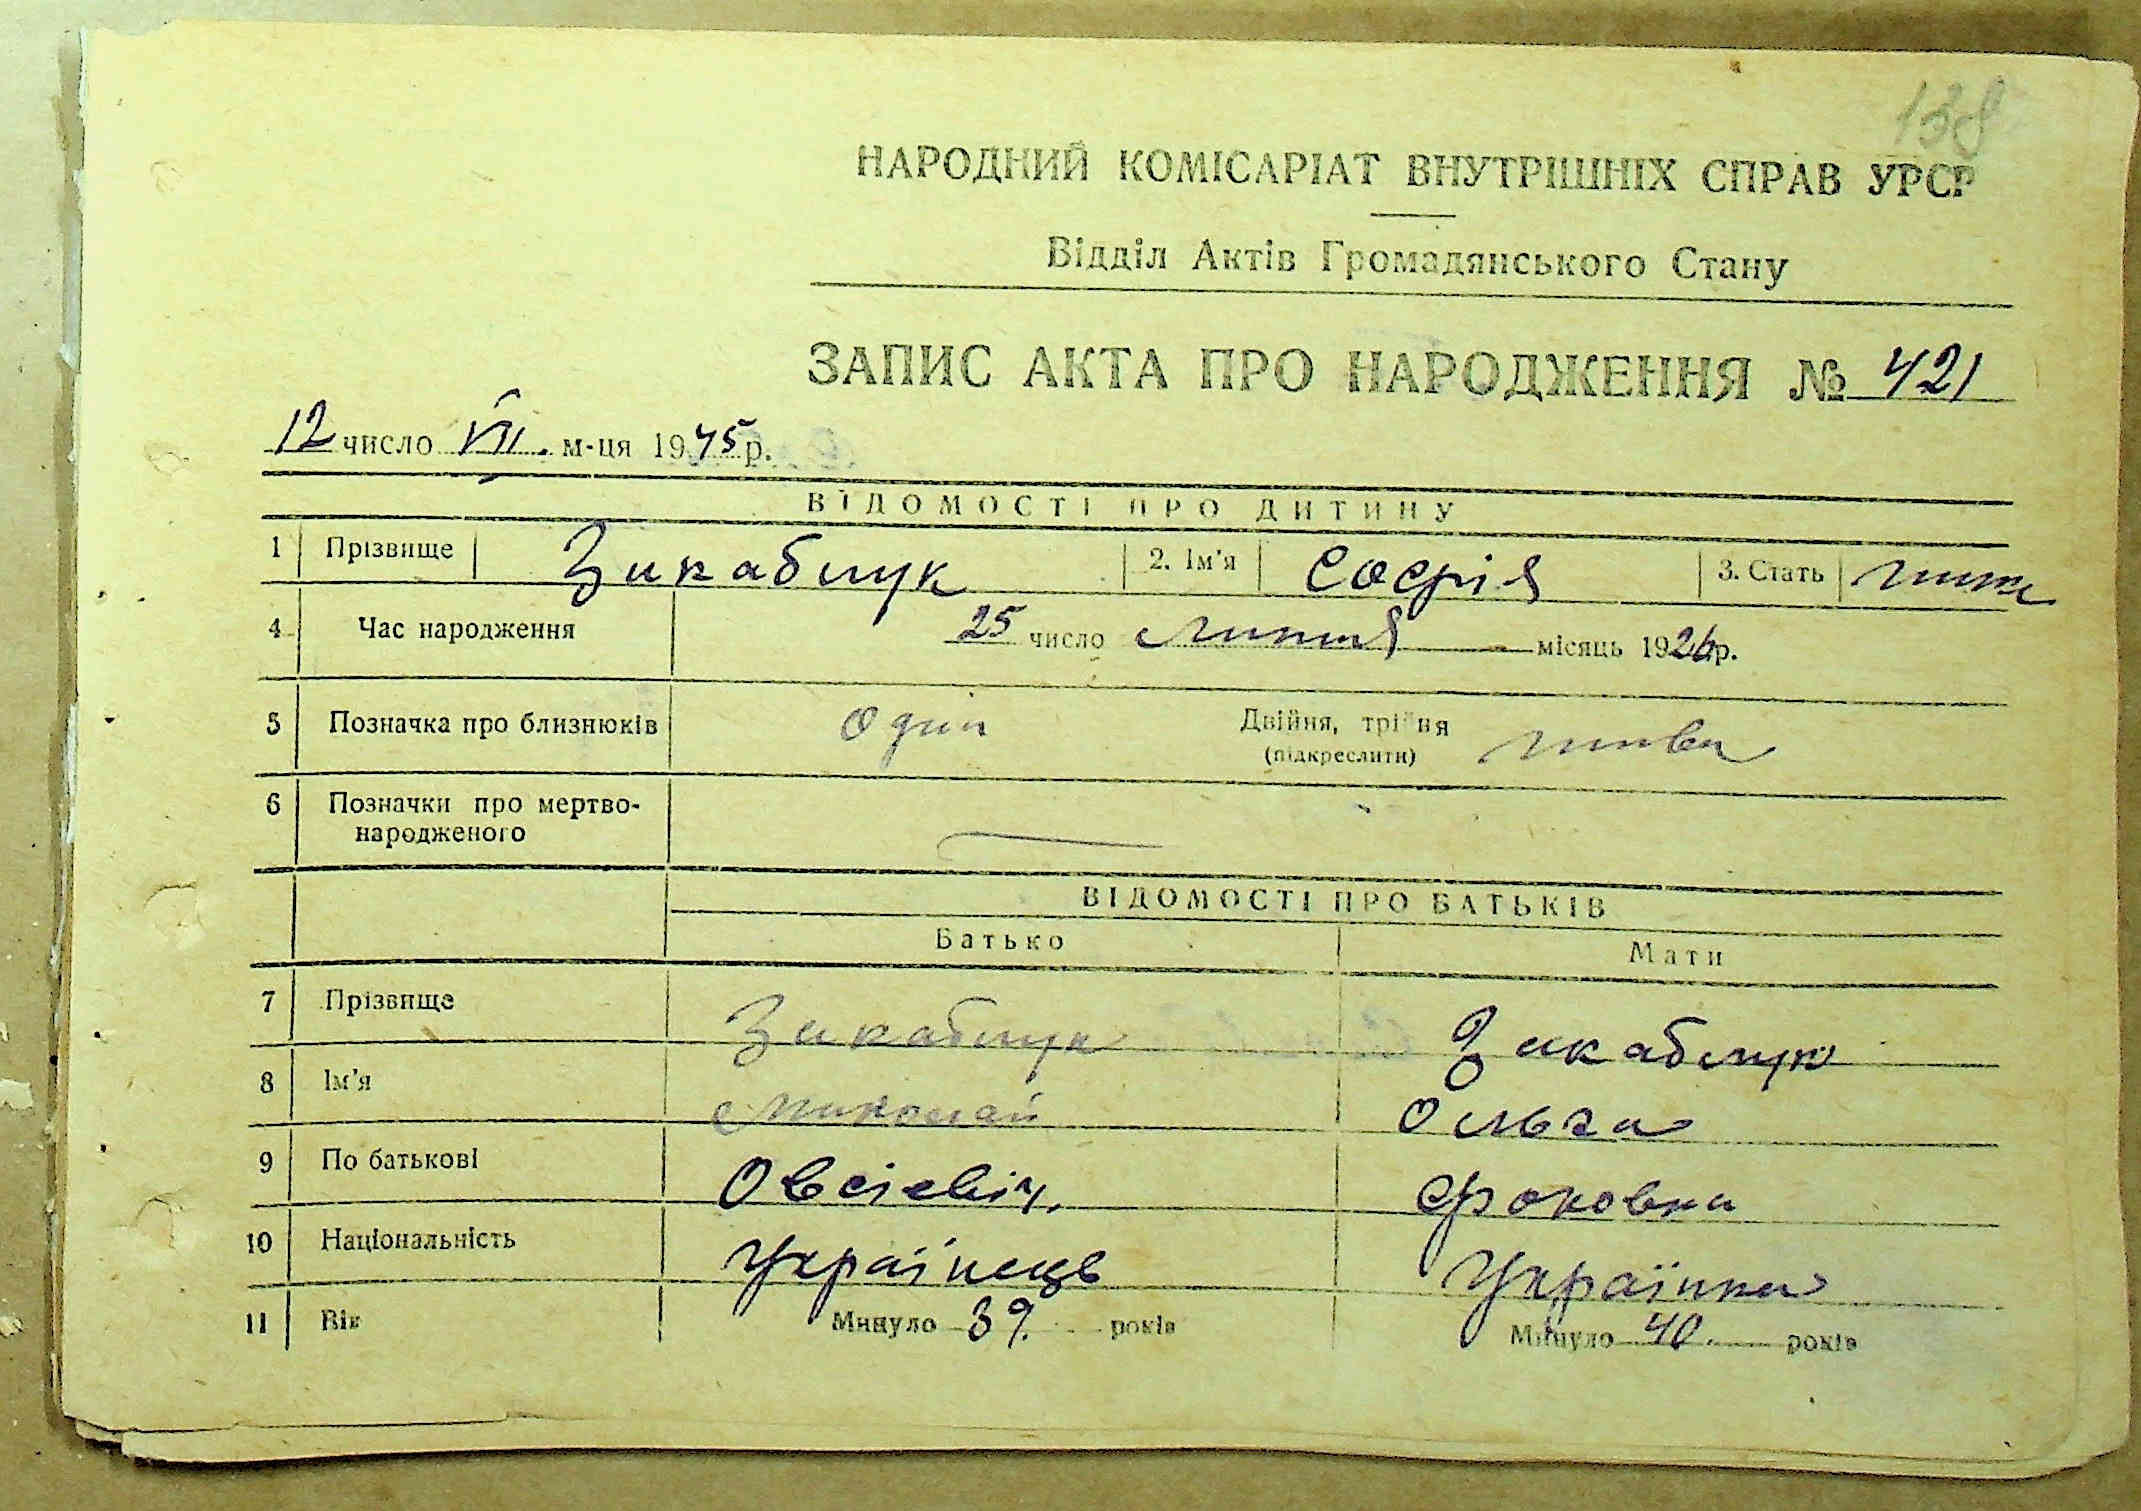 138
НАРОДНИЙ КОМІСАРІАТ ВНУТРІШНІХ СПРАВ УРСР
Відділ Актів Громадянського Стану
ЗАПИС АКТА ПРО НАРОДЖЕННЯ № 421
12 число VII. м-ця 1945 р.
ВІДОМОСТІ ПРО ДИТИНУ
1 Прізвище Зикаблук 2. Ім'я Софія 3. Стать жінк
4 Час народження 25 число липня місяць 1926р.
5 Позначка про близнюків один Двійня, трійня жива
(підкреслити)
6 Позначки про мертво-
народженого
ВІДОМОСТІ ПРО БАТЬКІВ
Батько Мати
7 Прізвище Зикаблук Зикаблук
8 Ім'я Николай Ольга
9 По батькові Овсієвіч. Фоковна
10 Національність Українець Українка
11 Вік Минуло 39. років Минуло 40. років